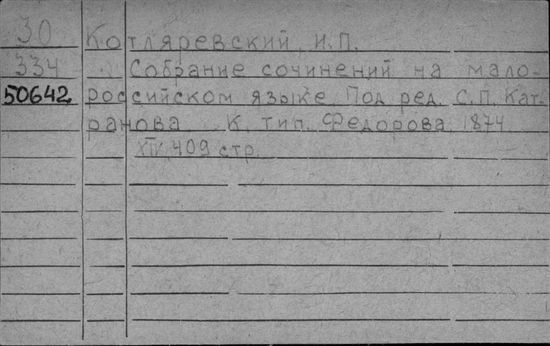 30 Котляревский, И.П.
334 Собрание сочинений на мало-
50642 российском языке. Под ред. С.П. Кат-
ранова К. тип. Федорова 1874
XIV, 409 стр.